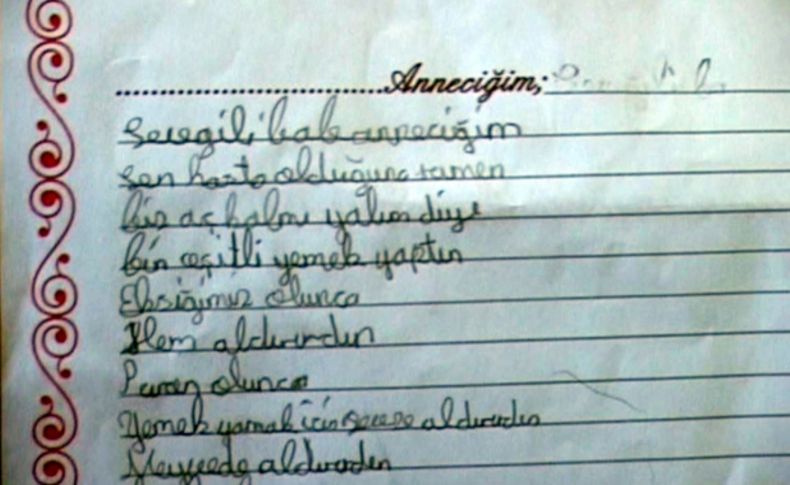 Anneciğim;
Sevegili bab anneciğim
sen hasta olduğuna ramen
biz aç kalmı yalım diye
bin çeşitli yemek yaptın
Eksiğimiz olunca
Hem aldırırdın
Paran olunca
Yemek yamak için aldırırdın
Meyvede aldırırdın